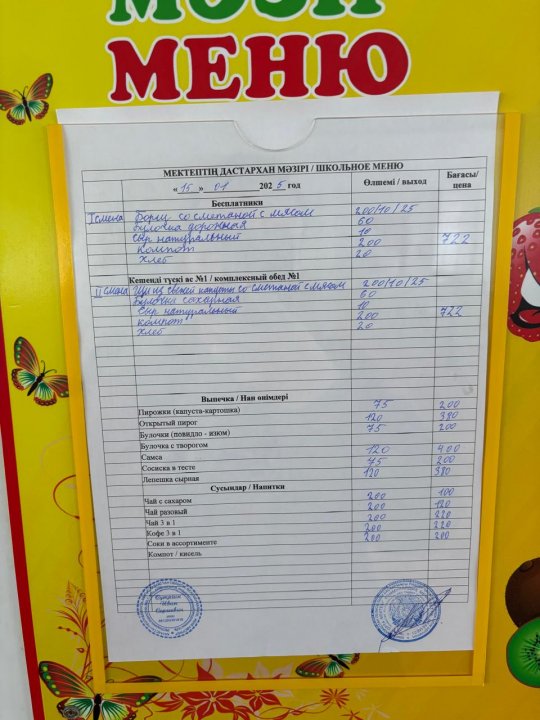 МӘЗІ
МЕНЮ
МЕКТЕПТІҢ ДАСТАРХАН МӘЗІРІ / ШКОЛЬНОЕ МЕНЮ
« 15 » 01 2025 год Өлшемі / выход Бағасы/ цена
Бесплатники
I смена Борщ со сметаной с мясом 200/10/25
булочка дорожная 60
сыр натуральный 10
компот 200 722
хлеб 20
Кешенді түскі ас №1 / комплексный обед №1
II смена Щи из свежей капусты со сметаной с мясом 200/10/25
Булочка сахарная 60
Сыр натуральный 10
компот 200 722
хлеб 20
Выпечка / Нан өнімдері
Пирожки (капуста-картошка) 75 200
Открытый пирог 120 380
Булочки (повидло - изюм) 75 200
Булочка с творогом
Самса 120 400
Сосиска в тесте 75 200
Лепешка сырная 120 380
Сусындар / Напитки
Чай с сахаром 200 100
Чай разовый 200 120
Чай 3 в 1 200 220
Кофе 3 в 1 200 220
Соки в ассортименте 200 200
Компот / кисель
Иван